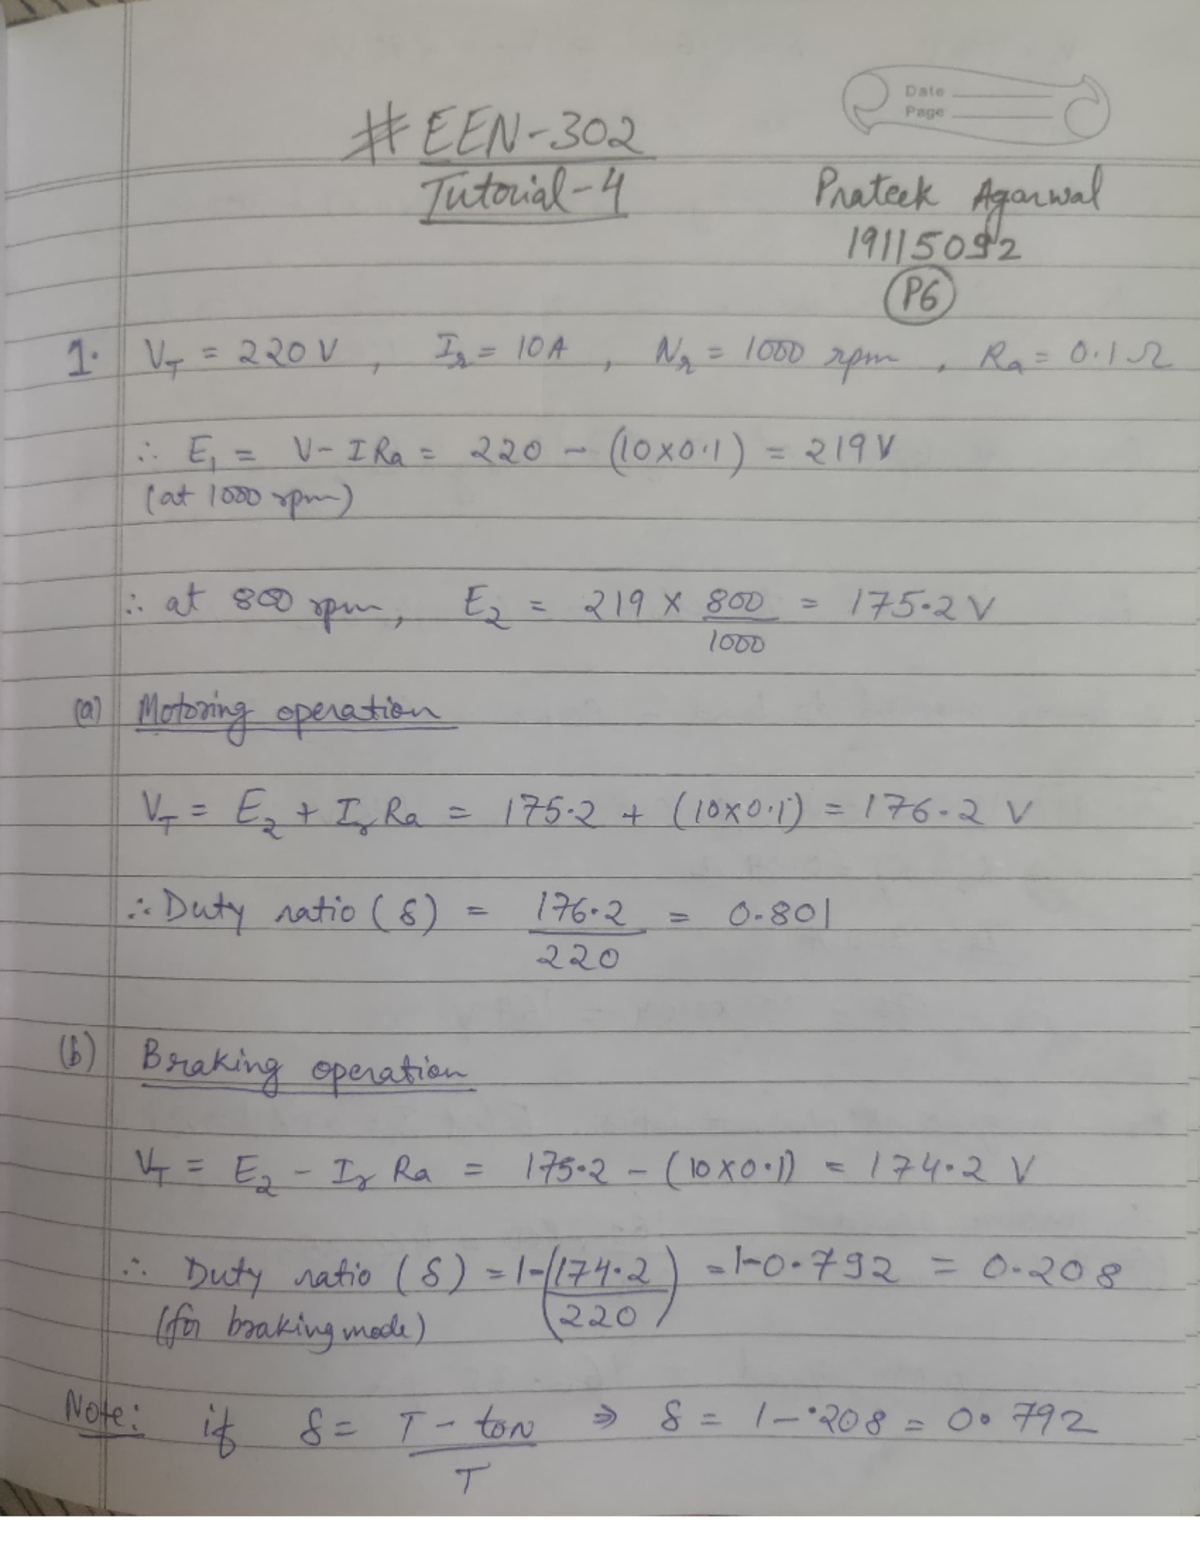 Date
Page
# EEN-302
Tutorial-4
Prateek Agarwal
19115092
P6
1. V_T = 220 V , I_r = 10A , N_r = 1000 rpm , R_a = 0.1 Ω
∴ E_1 = V - I R_a = 220 - (10×0.1) = 219 V
(at 1000 rpm)
∴ at 800 rpm, E_2 = 219 × 800/1000 = 175.2 V
(a) Motoring operation
V_T = E_2 + I_r R_a = 175.2 + (10×0.1) = 176.2 V
∴ Duty ratio (δ) = 176.2/220 = 0.801
(b) Braking operation
V_T = E_2 - I_r R_a = 175.2 - (10×0.1) = 174.2 V
∴ Duty ratio (δ) = 1-(174.2/220) = 1-0.792 = 0.208
(for braking mode)
Note: if δ = T - ton/T ⇒ δ = 1-.208 = 0.792